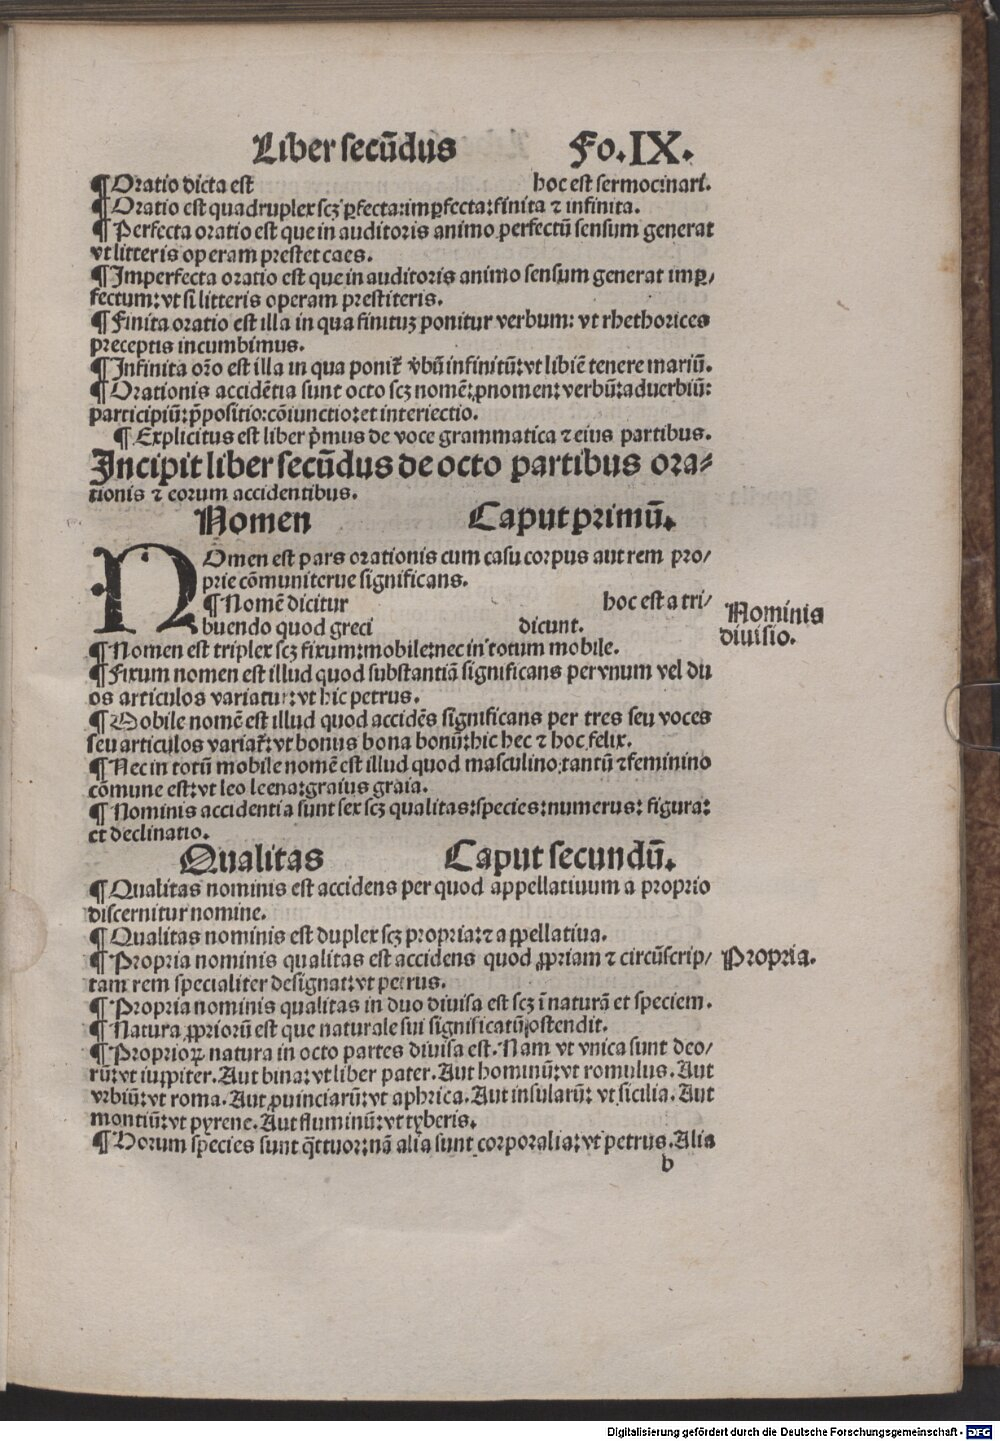 Liber secūdus Fo.IX.
¶ Oratio dicta est hoc est sermocinari.
¶ Oratio est quadruplex scꝫ ꝑfecta:imꝑfecta:finita ⁊ infinita.
¶ Perfecta oratio est que in auditoris animo perfectū sensum generat
vt litteris operam prestet caes.
¶ Imperfecta oratio est que in auditoris animo sensum generat imꝑ/
fectum:vt si litteris operam prestiteris.
¶ Finita oratio est illa in qua finituꝫ ponitur verbum: vt rhethorices
preceptis incumbimus.
¶ Infinita orō est illa in qua ponit̃ v̆bū infinitū:vt libiē tenere mariū.
¶ Orationis accidētia sunt octo scꝫ nomē:ꝓnomen:verbū:aduerbiū:
participiū:p̄positio:cōiunctio:et interiectio.
¶ Explicitus est liber p̄mus de voce grammatica ⁊ eius partibus.
Incipit liber secūdus de octo partibus ora⸗
tionis ⁊ eorum accidentibus.
Nomen Caput primū.
NOmen est pars orationis cum casu corpus aut rem pro/
prie cōmuniterue significans.
¶ Nomē dicitur hoc est a tri/
buendo quod greci dicunt.
Nominis
diuisio.
¶ Nomen est triplex scꝫ fixum:mobile:nec in totum mobile.
¶ Fixum nomen est illud quod substantiā significans per vnum vel du
os articulos variatur:vt hic petrus.
¶ Mobile nomē est illud quod accidēs significans per tres seu voces
seu articulos variat̃:vt bonus bona bonū:hic hec ⁊ hoc felix.
¶ Nec in totū mobile nomē est illud quod masculino:tantū ⁊ feminino
cōmune est:vt leo leena:graius graia.
¶ Nominis accidentia sunt sex scꝫ qualitas:species:numerus: figura:
et declinatio.
Qualitas Caput secundū.
¶ Qualitas nominis est accidens per quod appellatiuum a proprio
discernitur nomine.
¶ Qualitas nominis est duplex scꝫ propria:⁊ appellatiua.
¶ Propria nominis qualitas est accidens quod ꝓpriam ⁊ circūscrip/
tam rem specialiter designat:vt petrus.
Propria.
¶ Propria nominis qualitas in duo diuisa est scꝫ ī naturā et speciem.
¶ Natura ꝓpriorū est que naturale sui significatū ostendit.
¶ Proprioꝝ natura in octo partes diuisa est. Nam vt vnica sunt deo/
rū:vt iuꝑpiter. Aut bina:vt liber pater. Aut hominū:vt romulus. Aut
vrbiū:vt roma. Aut ꝓuinciarū:vt aphrica. Aut insularū: vt sicilia. Aut
montiū:vt pyrene. Aut fluminū:vt tyberis.
¶ Horum species sunt q̄ttuor:nā alia sunt corporalia:vt petrus. Alia
b
Digitalisierung gefördert durch die Deutsche Forschungsgemeinschaft - DFG